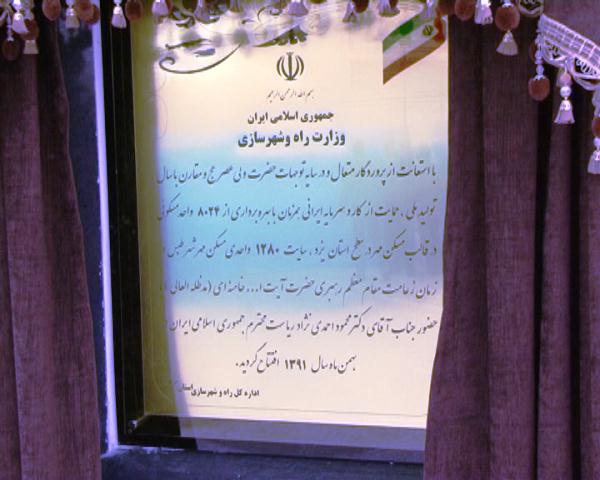 بسم الله الرحمن الرحیم
جمهوری اسلامی ایران
وزارت راه وشهرسازی
با استعانت از پروردگار متعال و در سایه توجهات حضرت ولی عصر عج و مقارن با سال
تولید ملی ، حمایت از کار و سرمایه ایرانی همزمان با بهره برداری از ۸۰۲۴ واحد مسکونی
در قالب مسکن مهر در سطح استان یزد ، سایت ۱۲۸۰ واحدی مسکن مهر شهر طبس
زمان زعامت مقام معظم رهبری حضرت آیت ا... خامنه ای (مدظله العالی)
حضور جناب آقای دکتر محمود احمدی نژاد ریاست محترم جمهوری اسلامی ایران
بهمن ماه سال ۱۳۹۱ افتتاح گردید.
اداره کل راه و شهرسازی استان